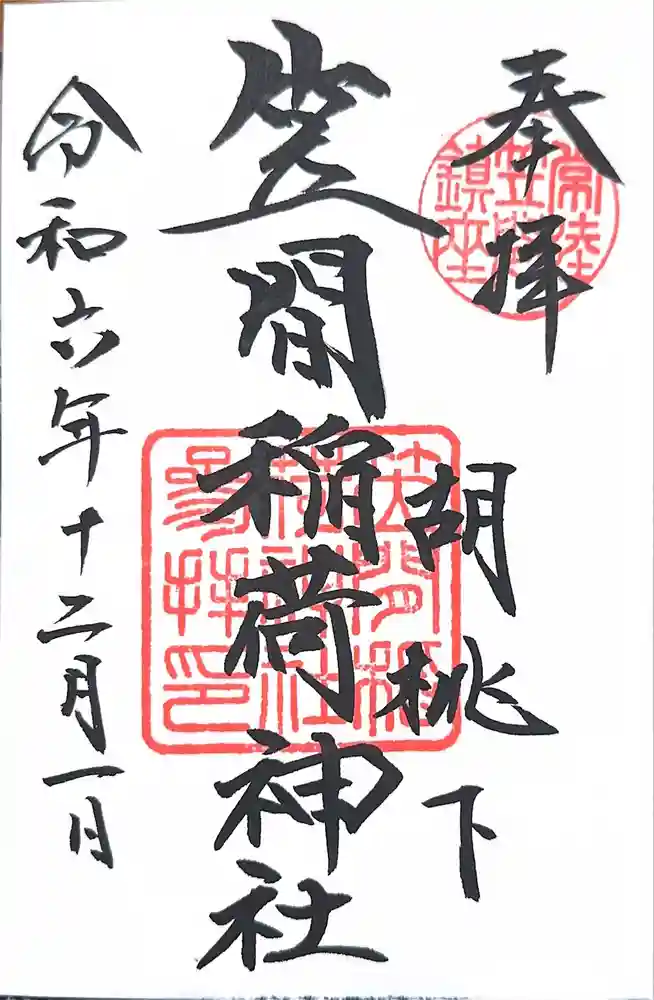 奉拝
常陸
笠間
鎮座
胡桃下
笠間稲荷神社
笠間稲
荷神社
昜拝印
令和六年十二月一日